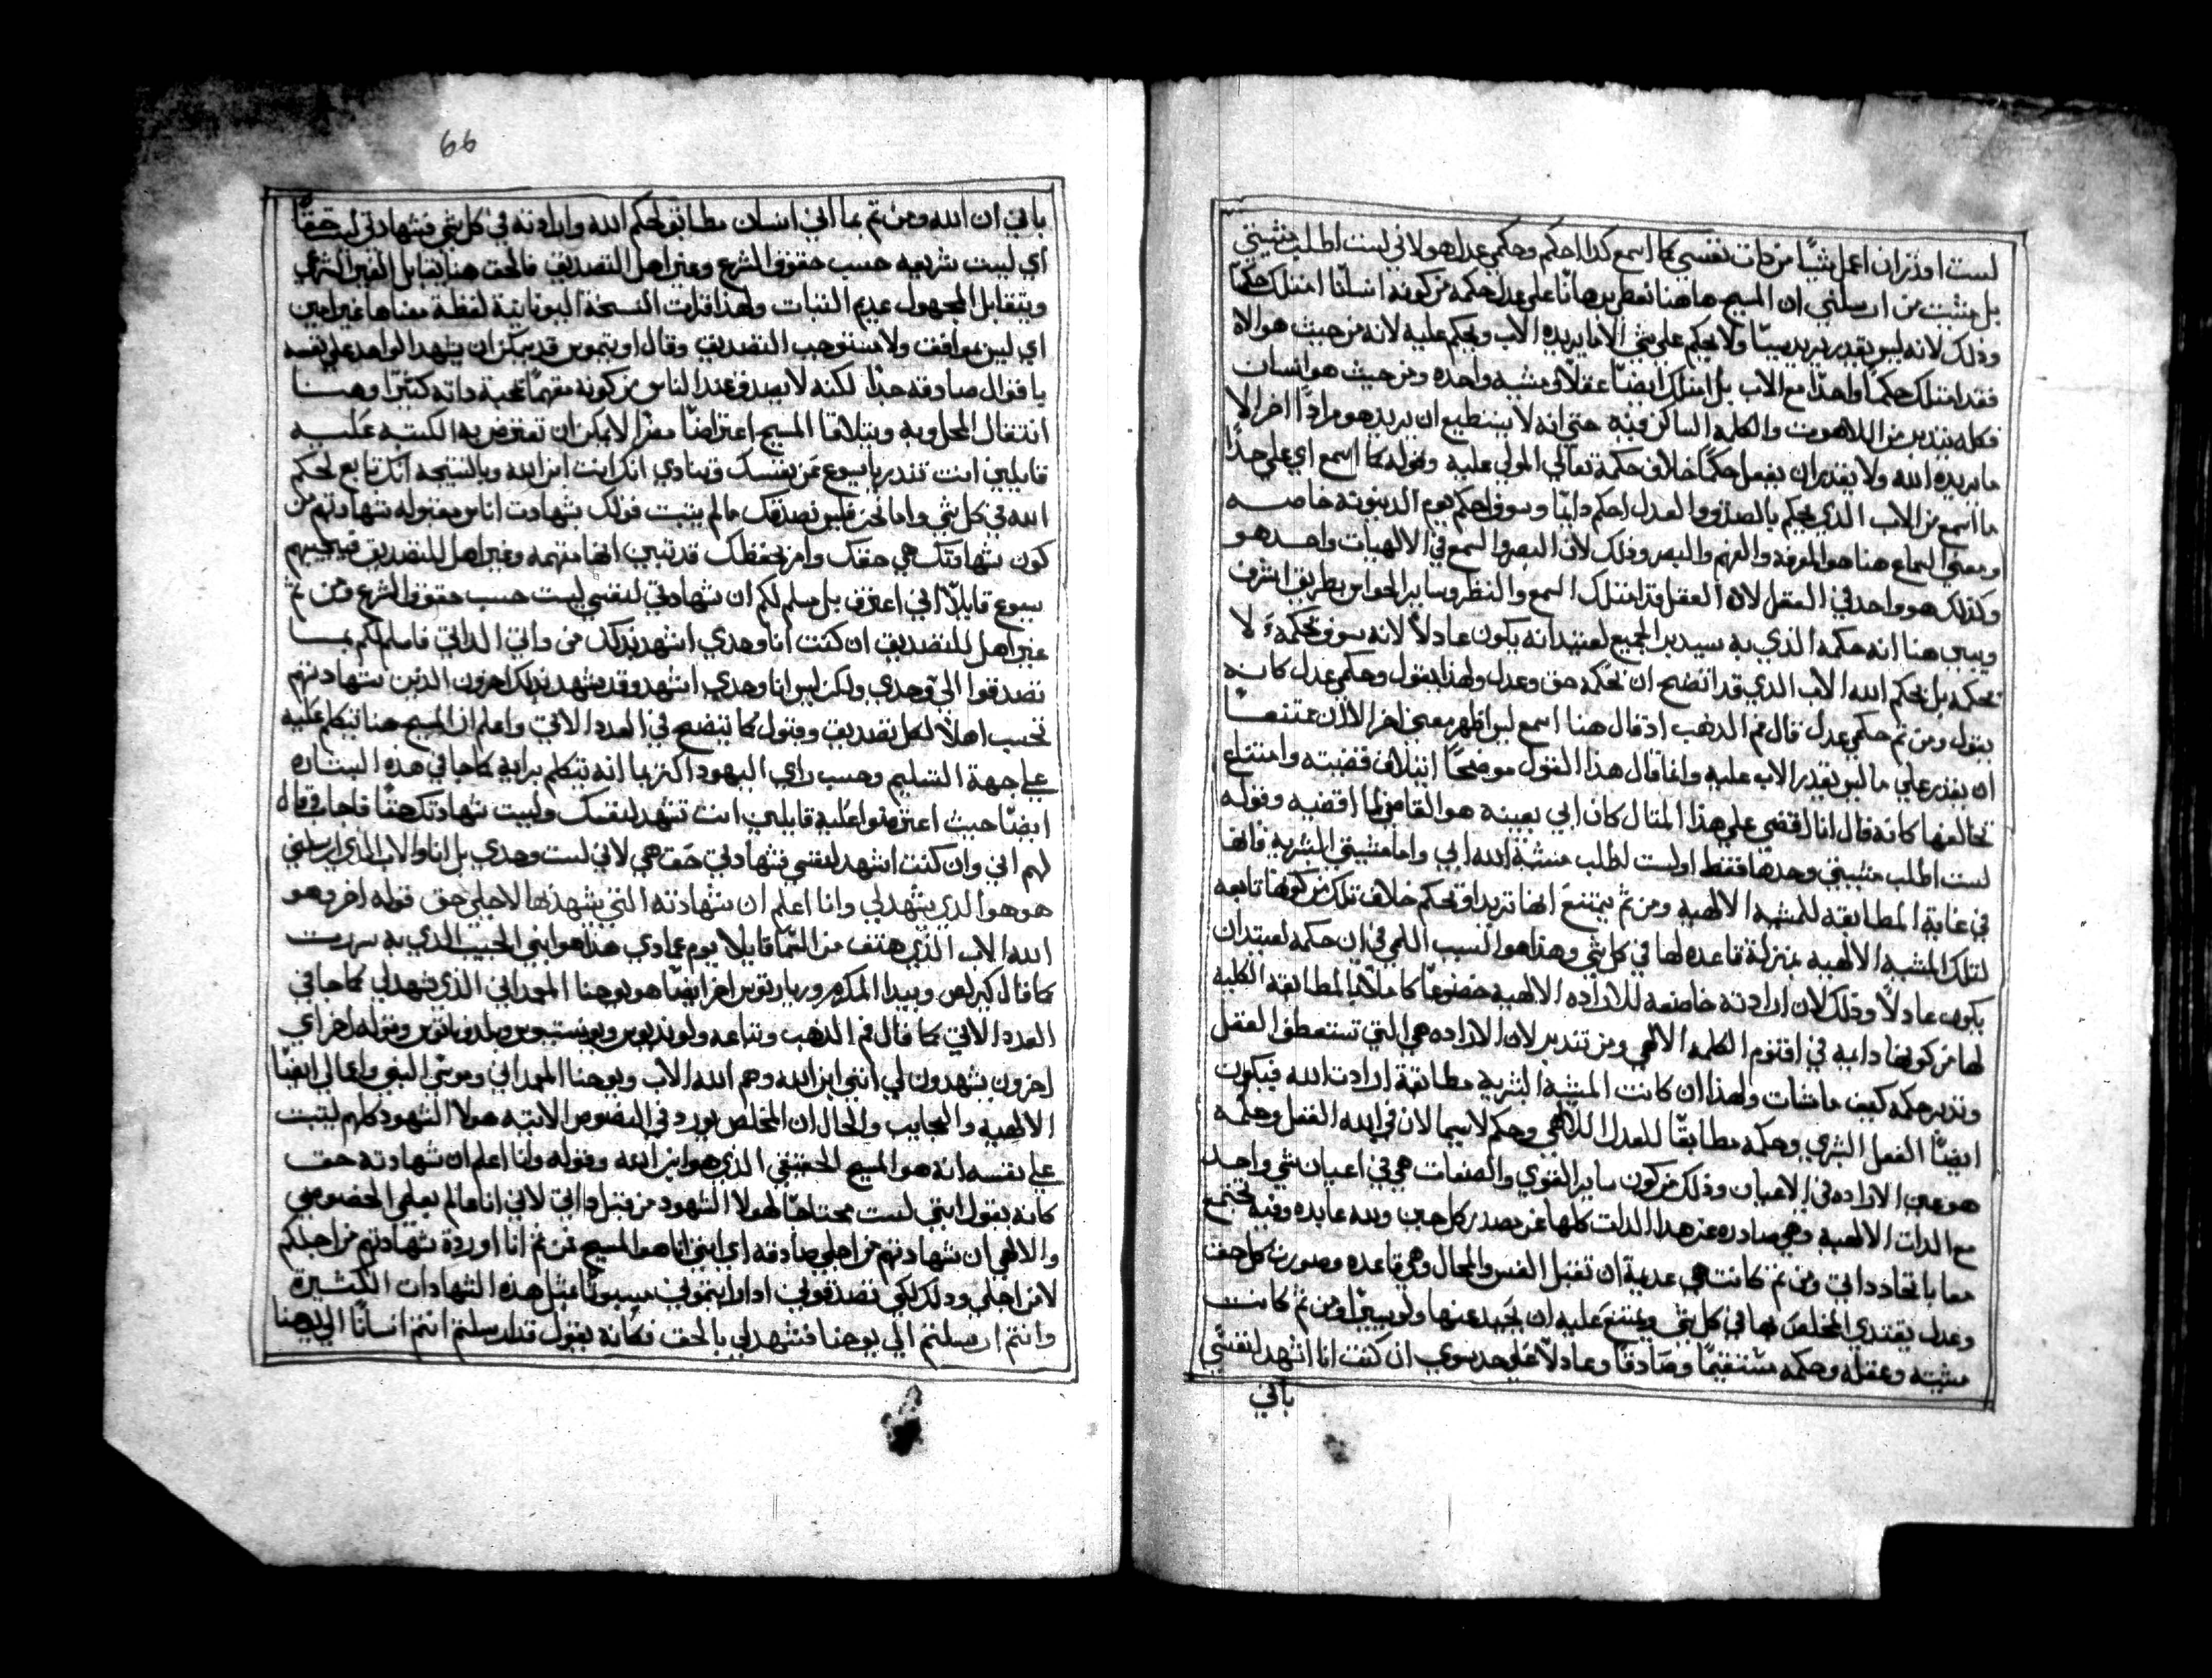 لست اقدر ان اعمل شيًا من ذات نفسي كما اسمع كذا احكم وحكمي عدل هو لاني لست اطلب مشيتي
بل مشيت من ارسلني ان المسيح هاهنا نعطي برهانًا على عدل حكمه من كونه انسانًا امتلك حكمًا
وذلك لانه ليس يقدر يريد شيًا ولا يحكم على شي الا ما يريده الاب ويحكم عليه لانه من حيث هو الاه
فقد امتلك حكمًا واحدًا مع الاب بل امتلك ايضًا عقلًا ومشيه واحده ومن حيث هو انسان
فكله يتدبر من اللاهوت والكلمه الساكن فيه حتي انه لا يستطيع ان يريد هو مرادًا اخر الا
ما يريده الله ولا يقدر ان يفعل حكمًا خلاف حكمة تعالي المولي عليه وقوله كما اسمع اي على حذا
ما اسمع من الاب الذي يحكم بالصدق والعدل احكم دايمًا وسوف احكم يوم الدينونه خاصه
ومعني السماع هنا هو المعرفه والفهم والبصر وذلك لان البصر والسمع في الالهيات واحد هو
وكذلك هو واحد في العقل لان العقل قد امتلك السمع والنظر وساير الحواس بطريق اشرف
ويبين هنا انه حكمه الذي به سيدبر الجميع لعتيد انه يكون عادلًا لانه سوف يحكمه لا
بحكمه بل بحكم الله الاب الذي قد اتضح ان حكمه حق وعدل ولهذا يقول وحكمي عدل كانه
يقول ومن ثم حكمي عدل قال فم الدهب اذ قال هنا اسمع ليس اظهر معني اخر الا ان ممتنعًا
ان يقدر على ما ليس يقدر الاب عليه وانما قال هذا القول موضحًا ايتلاف قضيته وامتناع
تخالفها كانه قال انا اقضي على هذا المثال كان ابي بعينه هو القاضي لما اقضيه وقوله
لست اطلب مشيتي وحدها فقط او لست اطلب مشية الله ابي واما مشيتي البشريه فانها
في غاية المطابقه للمشيه الالهيه ومن ثم يمتنع انها تريد او تحكم خلاف تلك من كونها تابعه
لتلك المشيه الالهيه بمنزلة قاعده لها في كل شي وهذا هو السبب اللمي في ان حكمه لعتيد ان
يكون عادلًا وذلك لان ارادته خاضعه للاراده الالهيه خضوعًا كاملًا بالمطابقه الكليه
لها من كونها دايبه في اقنوم الكلمه الالهي ومن تتدبر لان الاراده هي التي تستعطف العقل
وتدبر حكمه كيف ماشات ولهذا ان كانت المشيه البشريه مطابقة ارادت الله فيكون
ايضًا الفعل البشري وحكمه مطابقًا للعدل الالاهي وحكم لاسيما لان في الله الفعل وحكمه
هو عين الاراده في الاعيان وذلك من كون ساير القوي والصفات هي في اعيان شي واحد
مع الذات الالهيه وهي صادره عن هذا الذات كلها عن مصدر كل حين وبه عايده وفيه تجتمع
معا باتحاد داتي ومن ثم كانت هي عديمة ان تقبل الفسر والمحال وهي قاعده وصورت كل حق
وعدل يقتدي المخلص بها في كل شي ويمتنع عليه ان يحيد عنها ولو يسيرًا ومن ثم كانت
مشيته وعقله وحكمه مستقيمًا وصادقًا وعادلًا على حد سوي ان كنت انا اشهد لنفسي
باني
66
باني ان الله ومن ثم بما اني انسان مطابق لحكم الله وارادته في كل شي فشهادتي ليست حقًا
اي ليست شرعيه حسب حقوق الشرع وغير اهل التصديق فالحق هنا يقابل الغير الشرعي
ويتقابل المجهول عديم الثبات ولهذا قرات النسخة اليونانية لفظة معناها غير امين
اي ليس موافق ولا مستوجب التصديق وقال اوتيموس قد يمكن ان يشهد الواحد على نفسه
باقوال صادقه جدًا لكنه لا يصدق عند الناس من كونه متهمًا بمحبة ذاته كثيرًا وهنا
انتقال المحاوبه ويتلاقا المسيح اعتراضًا مضمرًا لايمكن ان تعترض به الكتبه عليه
قايلين انت تنذر يا يسوع عن نفسك وتنادي انك انت ابن الله وبالنتيجه انك تابع لحكم
الله في كل شي واما نحن فليس نصدقك مالم يثبت قولك بشهادت اناس مقبوله شهادتهم من
كون شهادتك هي حقك وامر يخصك قد تبين انها متهمه وغير اهل للتصديق فيجيبهم
يسوع قايلًا اني اعترف بل مسلم لكم ان شهادتي لنفسي ليست حسب حقوق الشرع ومن ثم
غير اهل للتصديق ان كنت انا وحدي اشهد بذلك من راي الداتي فاسلم لكم بما
تصدقوا الي وحدي ولكن ليس انا وحدي اشهد وقد يشهد بذلك اخرون الذين شهادتهم
تحسب اهلًا لكل تصديق وقبول كما يتضح في العدد الاتي واعلم ان المسيح هنا يتكلم عليه
على جهة التسليم وحسب راي اليهود اكثر مما انه يتكلم برايه كما جا في هذه البشاره
ايضًا حيث اعترضوا عليه قايلين انت تشهد لنفسك وليست شهادتك حقًا فاجاب وقال
لهم اني وان كنت اشهد لنفسي فشهادتي حق هي لاني لست وحدي بل انا والاب الذي ارسلني
هو هو الذي يشهد لي وانا اعلم ان شهادته التي يشهدها لاجلي حق قوله اخر وهو
الله الاب الذي هتف من السما قايلا يوم عمادي هذا هو ابني الحبيب الذي به سررت
كما قال كيرلس وبيدا المكرم وربارتوس اخر ايضًا هو يوحنا المعمداني الذي شهد لي كما جا في
العدد الاتي كما قال فم الدهب وتباعه ولونديوس ويونستيوس وملدوناتوس وقوله اخر اي
اخرون يشهدون لي انني ابن الله وهم الله الاب ويوحنا المعمداني وموسي النبي واعمالي ايضًا
الالهيه والعجايب والحال ان المخلص يورد في النصوص الاتيه هولا الشهود كلهم ليثبت
على نفسه انه هو المسيح الحقيقي الذي هو ابن الله وقوله وانا اعلم ان شهادته حق
كانه يقول انني لست محتاجًا لهولا الشهود من قبل ذاتي لاني انا عالم بعلمي الخصوصي
والالهي ان شهادتهم من اجلي صادقه اي انني انا هو المسيح فمن ثم انا اوردة شهادتهم من اجلكم
لا من اجلي وذلك لكي تصدقوني اذا رايتموني مسبوتًا بمثل هذه الشهادات الكثيرة
وانتم ارسلتم الي يوحنا فشهد لي بالحق فكانه يقول قد ارسلتم انتم انسانًا الي يوحنا